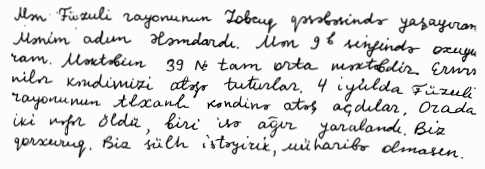 Mən Füzuli rayonunun Zobcuq qəsəbəsində yaşayıram
Mənim adım Həmdərdi. Mən 9 b sinfində oxuyu
ram. Məktəbim 39 № tam orta məktəbdir. Ermə
nilər kəndimizi atəşə tuturlar. 4 iyulda Füzuli
rayonunun Alxanlı kəndinə atəş açdılar. Orada
iki nəfər öldü, biri isə ağır yaralandı. Biz
qorxuruq. Biz sülh istəyirik, müharibə olmasın.